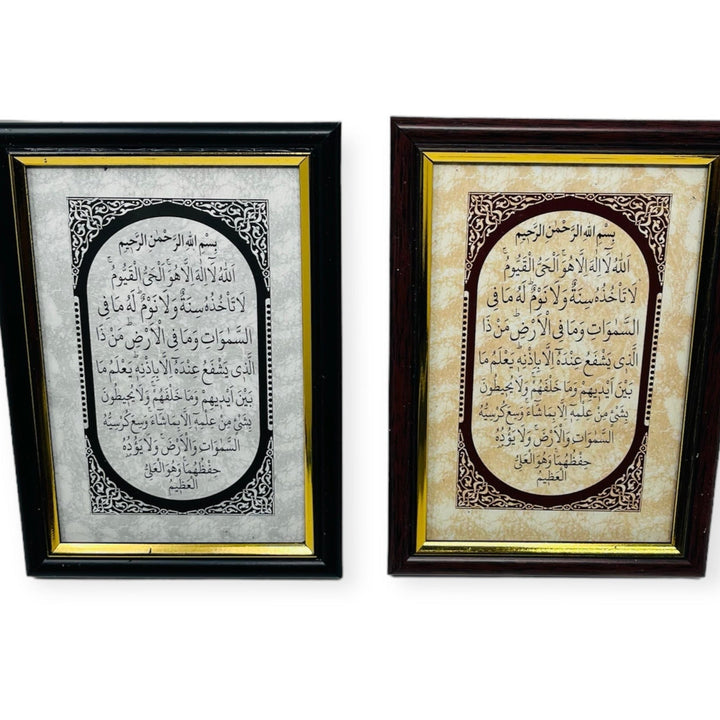 بِسْمِ اللهِ الرَّحْمٰنِ الرَّحِيْمِ
اَللهُ لَآ اِلٰهَ اِلَّا هُوَ ۚ اَلْحَىُّ الْقَيُّوْمُ ۚ
لَا تَاْخُذُهٗ سِنَةٌ وَّلَا نَوْمٌ ؕ لَهٗ مَا فِى
السَّمٰوَاتِ وَمَا فِى الْاَرْضِ ؕ مَنْ ذَا
الَّذِى يَشْفَعُ عِنْدَهٗٓ اِلَّا بِاِذْنِهٖ ؕ يَعْلَمُ مَا
بَيْنَ اَيْدِيْهِمْ وَمَا خَلْفَهُمْ ۚ وَلَا يُحِيْطُوْنَ
بِشَىْءٍ مِّنْ عِلْمِهٖٓ اِلَّا بِمَا شَآءَ ۚ وَسِعَ كُرْسِيُّهُ
السَّمٰوَاتِ وَالْاَرْضَ ۚ وَلَا يَؤُدُهٗ
حِفْظُهُمَا ۚ وَهُوَ الْعَلِىُّ
الْعَظِيْمُ
بِسْمِ اللهِ الرَّحْمٰنِ الرَّحِيْمِ
اَللهُ لَآ اِلٰهَ اِلَّا هُوَ ۚ اَلْحَىُّ الْقَيُّوْمُ ۚ
لَا تَاْخُذُهٗ سِنَةٌ وَّلَا نَوْمٌ ؕ لَهٗ مَا فِى
السَّمٰوَاتِ وَمَا فِى الْاَرْضِ ؕ مَنْ ذَا
الَّذِى يَشْفَعُ عِنْدَهٗٓ اِلَّا بِاِذْنِهٖ ؕ يَعْلَمُ مَا
بَيْنَ اَيْدِيْهِمْ وَمَا خَلْفَهُمْ ۚ وَلَا يُحِيْطُوْنَ
بِشَىْءٍ مِّنْ عِلْمِهٖٓ اِلَّا بِمَا شَآءَ ۚ وَسِعَ كُرْسِيُّهُ
السَّمٰوَاتِ وَالْاَرْضَ ۚ وَلَا يَؤُدُهٗ
حِفْظُهُمَا ۚ وَهُوَ الْعَلِىُّ
الْعَظِيْمُ